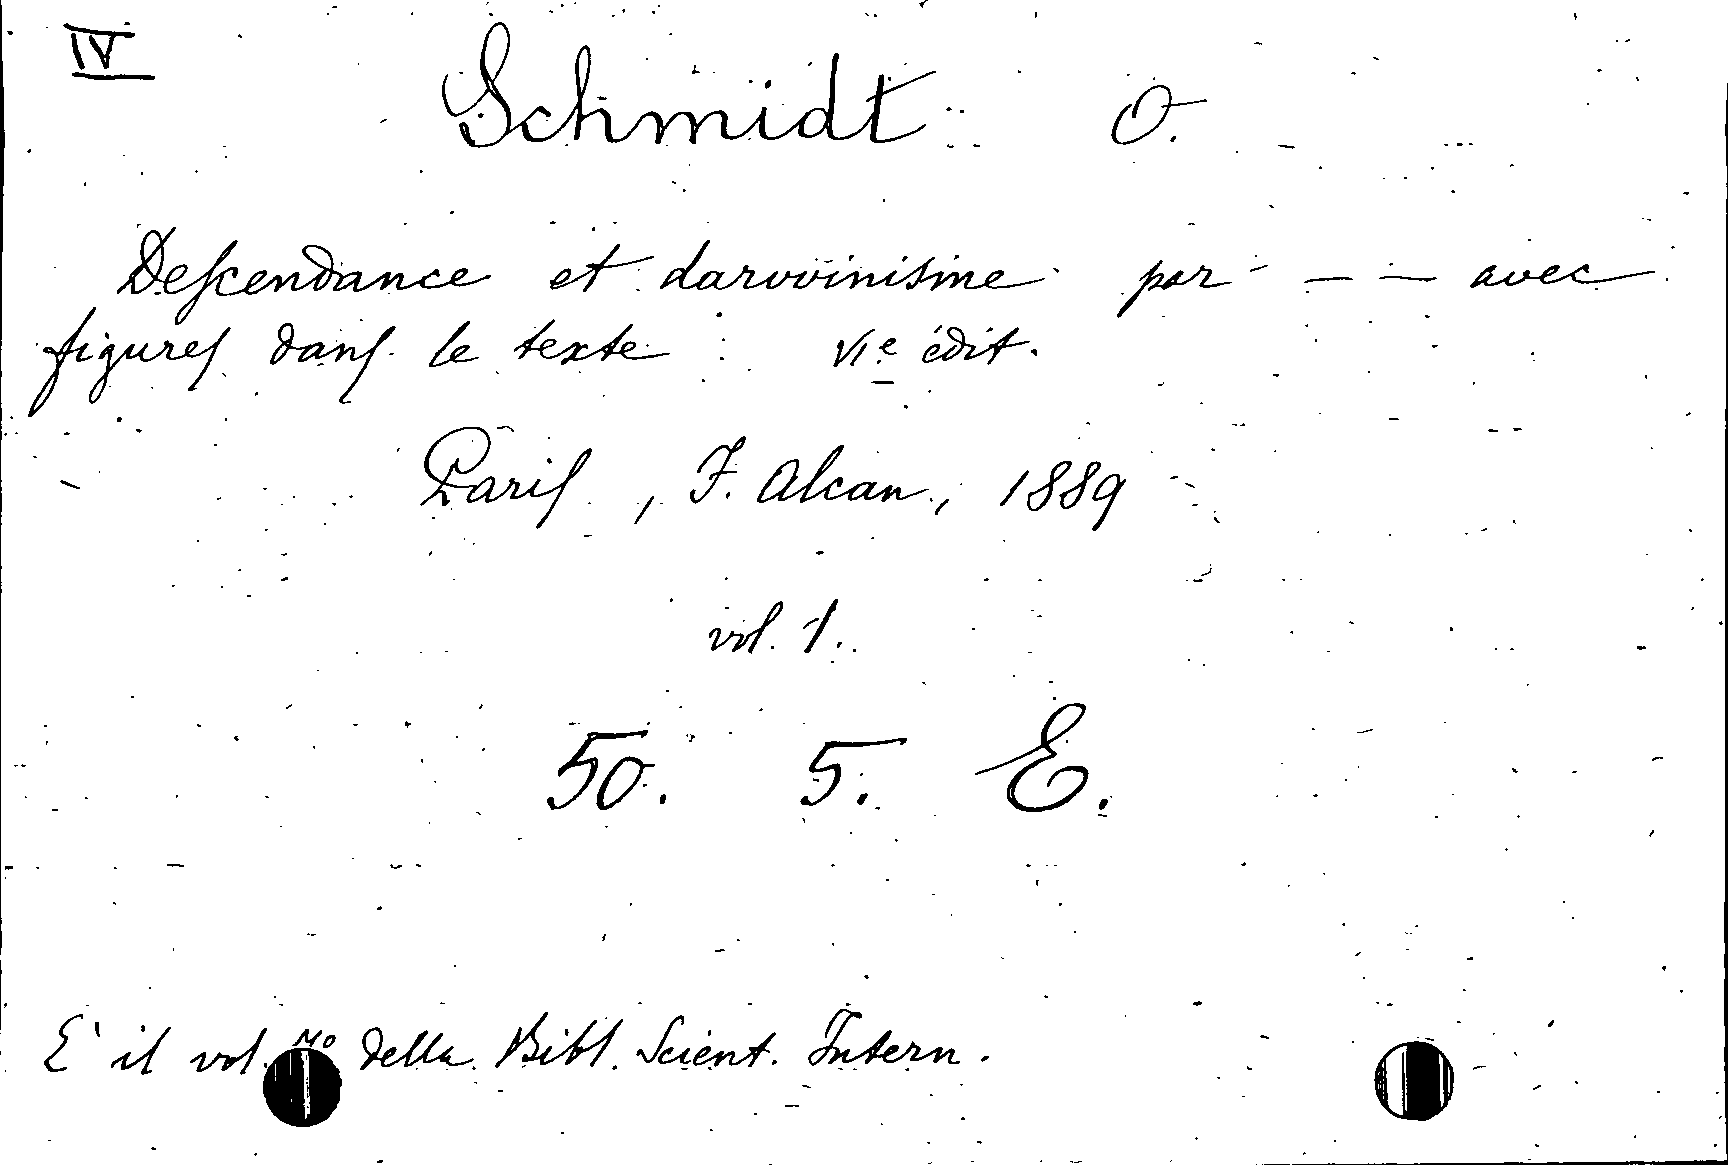 IV
Schmidt O.
Descendance et darwinisme par - — — avec
figures dans le texte VIe édit.
Paris, F. Alcan, 1889
vol. 1.
50. 5. E.
E' il vol. della Bibl. Scient. Intern.